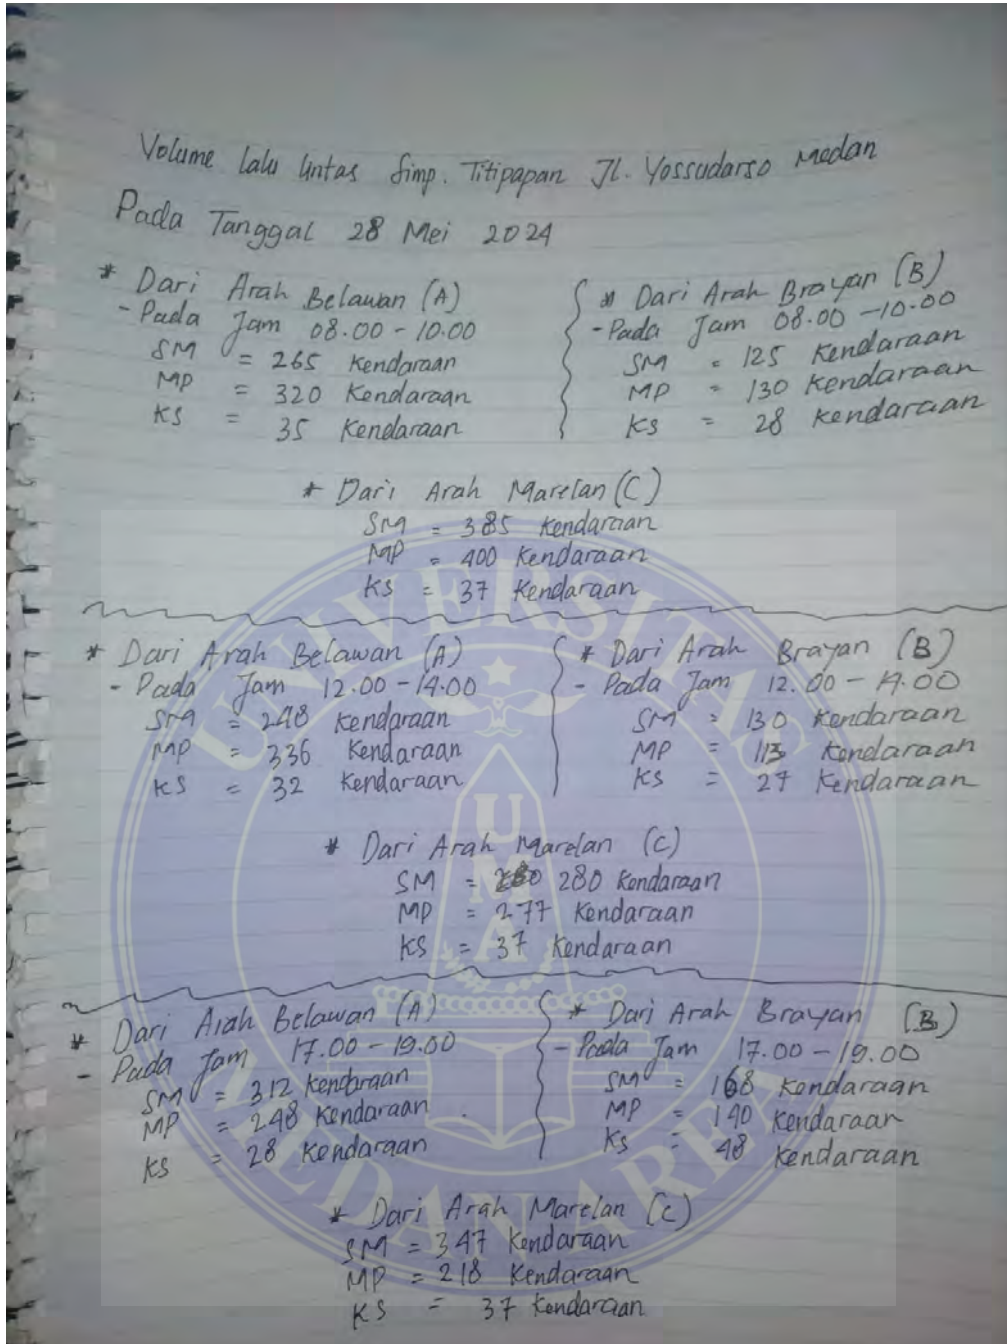 Volume lalu lintas Simp. Titipapan Jl. Yossudarso Medan
Pada Tanggal 28 Mei 2024
* Dari Arah Belawan (A)
- Pada Jam 08.00 - 10.00
SM = 265 Kendaraan
MP = 320 Kendaraan
KS = 35 Kendaraan
* Dari Arah Brayan (B)
- Pada Jam 08.00 - 10.00
SM = 125 Kendaraan
MP = 130 Kendaraan
KS = 28 Kendaraan
* Dari Arah Marelan (C)
SM = 385 Kendaraan
MP = 400 Kendaraan
KS = 37 Kendaraan
* Dari Arah Belawan (A)
- Pada Jam 12.00 - 14.00
SM = 248 Kendaraan
MP = 336 Kendaraan
KS = 32 Kendaraan
* Dari Arah Brayan (B)
- Pada Jam 12.00 - 14.00
SM = 130 Kendaraan
MP = 113 Kendaraan
KS = 27 Kendaraan
* Dari Arah Marelan (C)
SM = 280 Kendaraan
MP = 277 Kendaraan
KS = 37 Kendaraan
* Dari Arah Belawan (A)
- Pada Jam 17.00 - 19.00
SM = 312 Kendaraan
MP = 248 Kendaraan
KS = 28 Kendaraan
* Dari Arah Brayan (B)
- Pada Jam 17.00 - 19.00
SM = 168 Kendaraan
MP = 140 Kendaraan
KS = 48 Kendaraan
* Dari Arah Marelan (C)
SM = 347 Kendaraan
MP = 218 Kendaraan
KS = 37 Kendaraan
UNIVERSITAS
UMA
MEDAN AREA